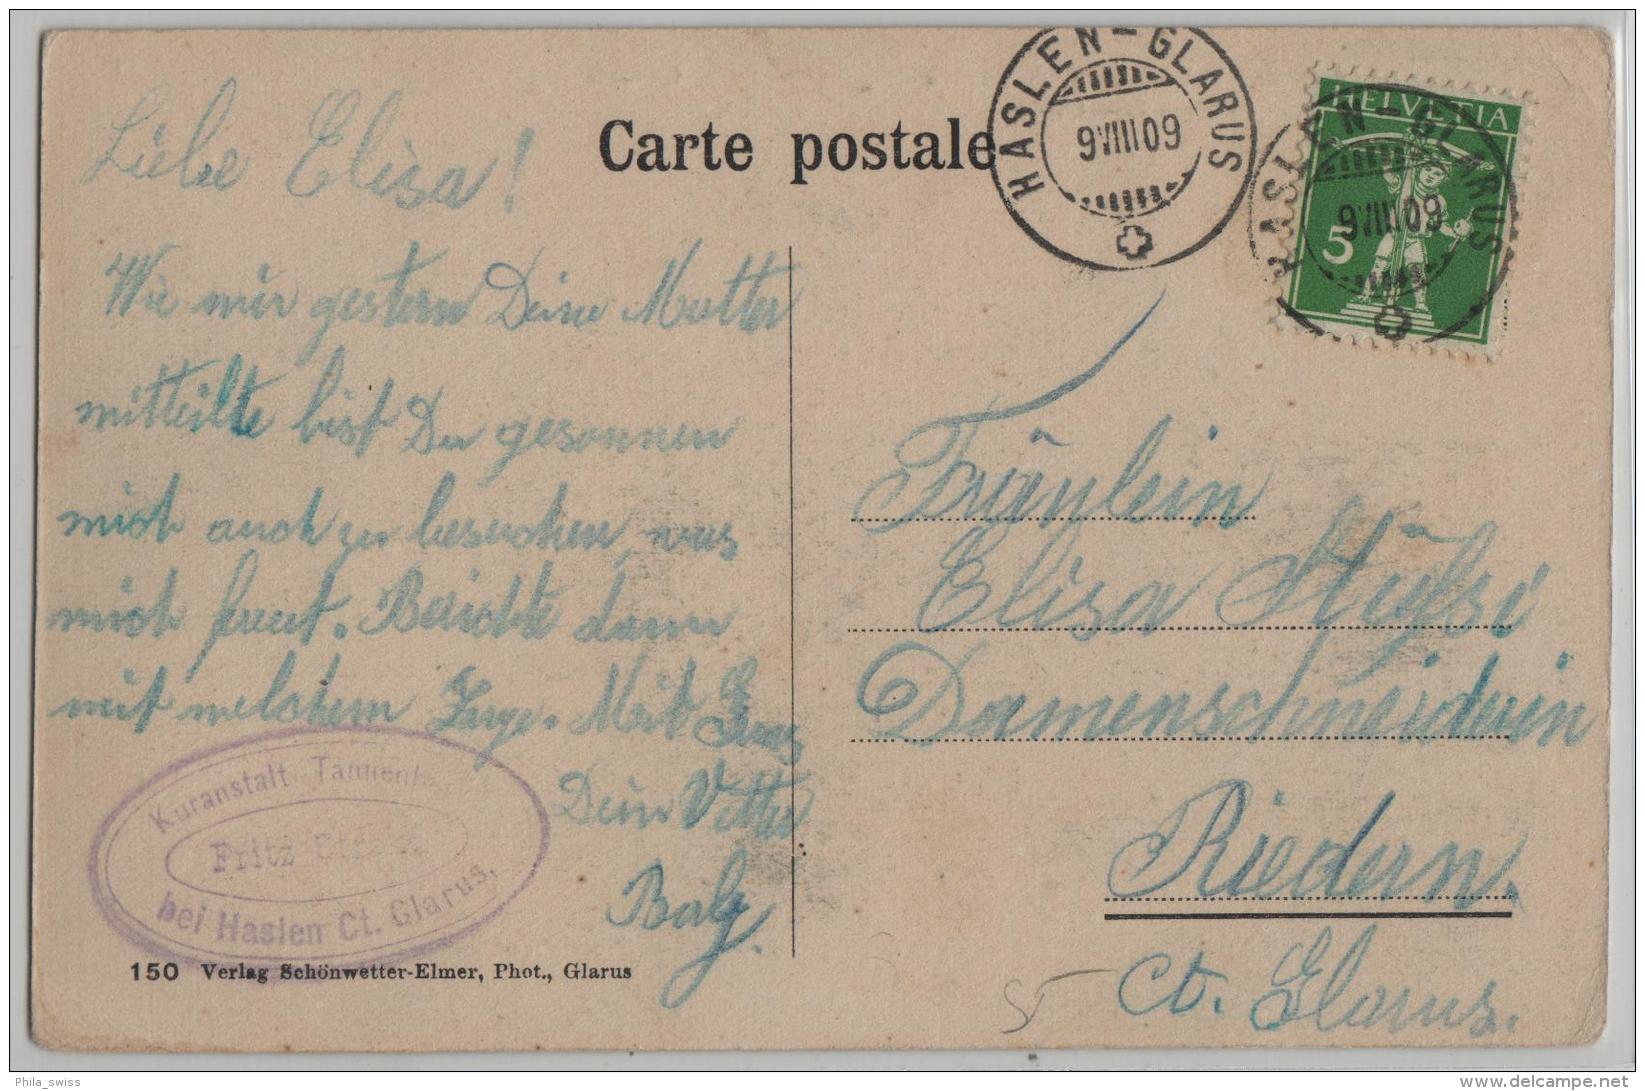 Carte postale
HASLEN-GLARUS
9 VIII 09
HELVETIA
5
HASLEN-GLARUS
9 VIII 09
Liebe Elisa!
Wie mir gestern Deine Mutter
mitteilte bist Du gesonnen
mich auch zu besuchen, was
mich freut. Berichte dann
mit welchem Zuge. Mit Gruss
Dein Vetter
Fräulein
Elisa Stüssi
Damenschneiderin
Riedern.
Ct. Glarus.
Kuranstalt
Fritz
bei Haslen Ct. Glarus.
150 Verlag Schönwetter-Elmer, Phot., Glarus
Phila_swiss
delcampe.net